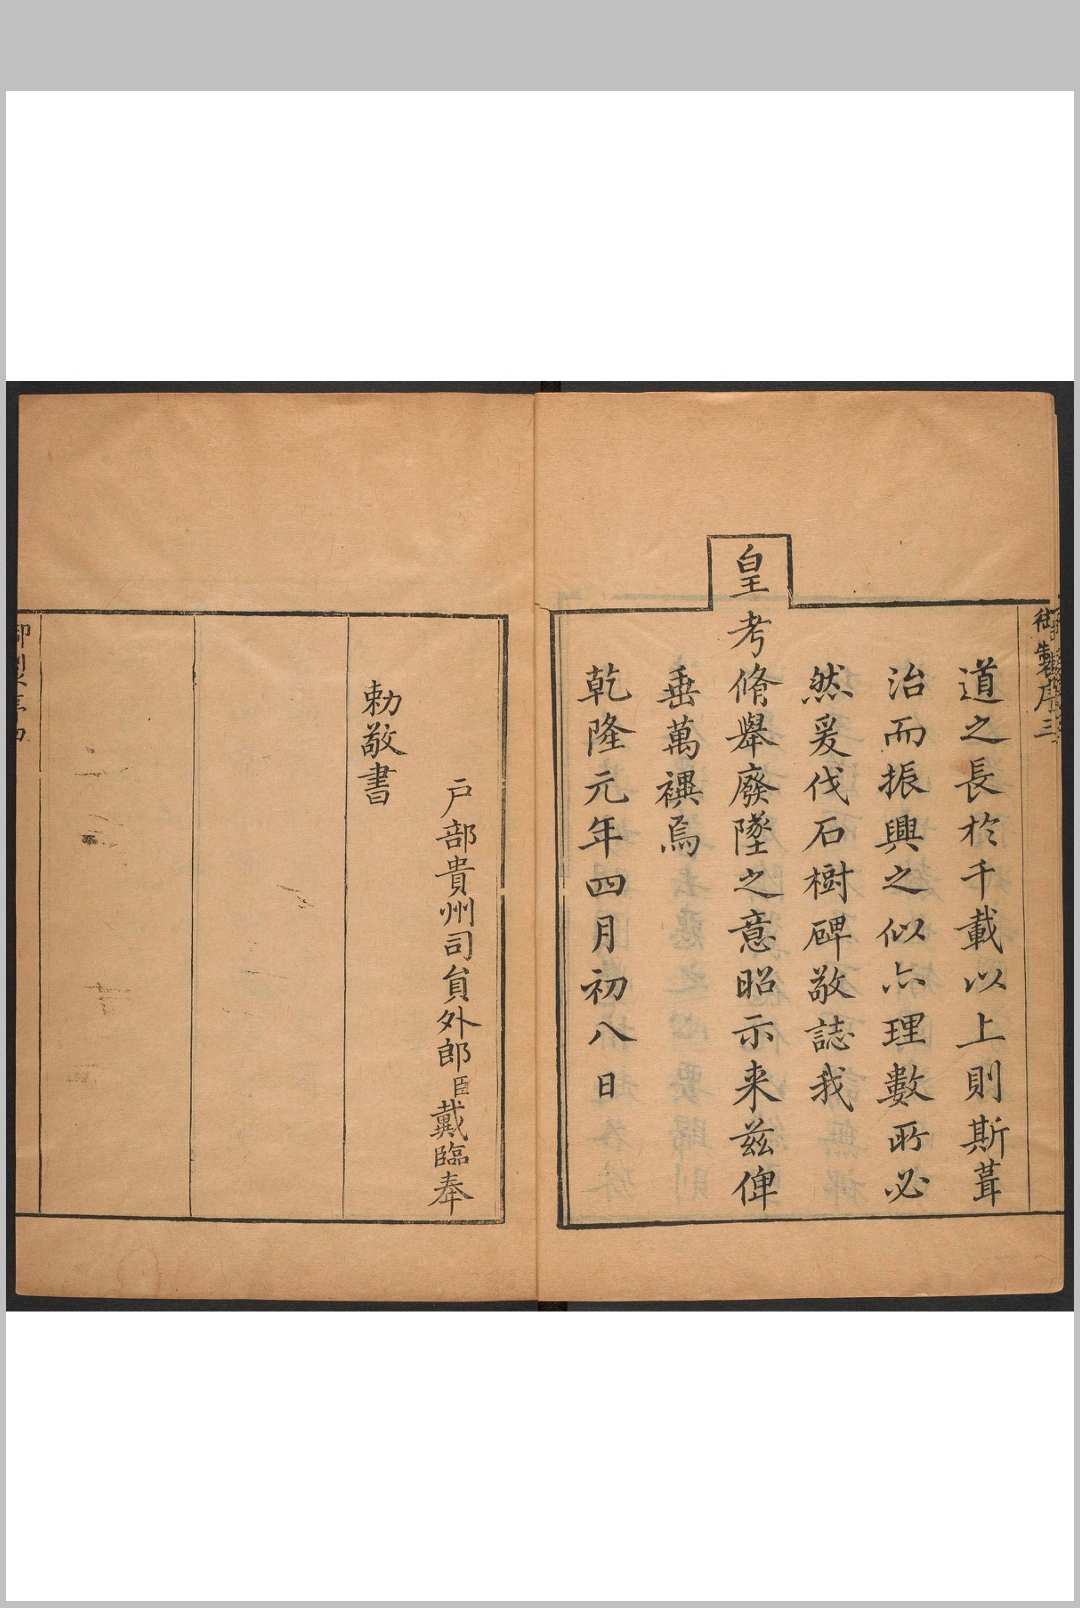 御製序 三
道之長於千載以上則斯葺
治而振興之似亦理數所必
然爰伐石樹碑敬誌我
皇考脩舉廢墜之意昭示来兹俾
垂萬禩焉
乾隆元年四月初八日
戶部貴州司貟外郎臣戴臨奉
勅敬書